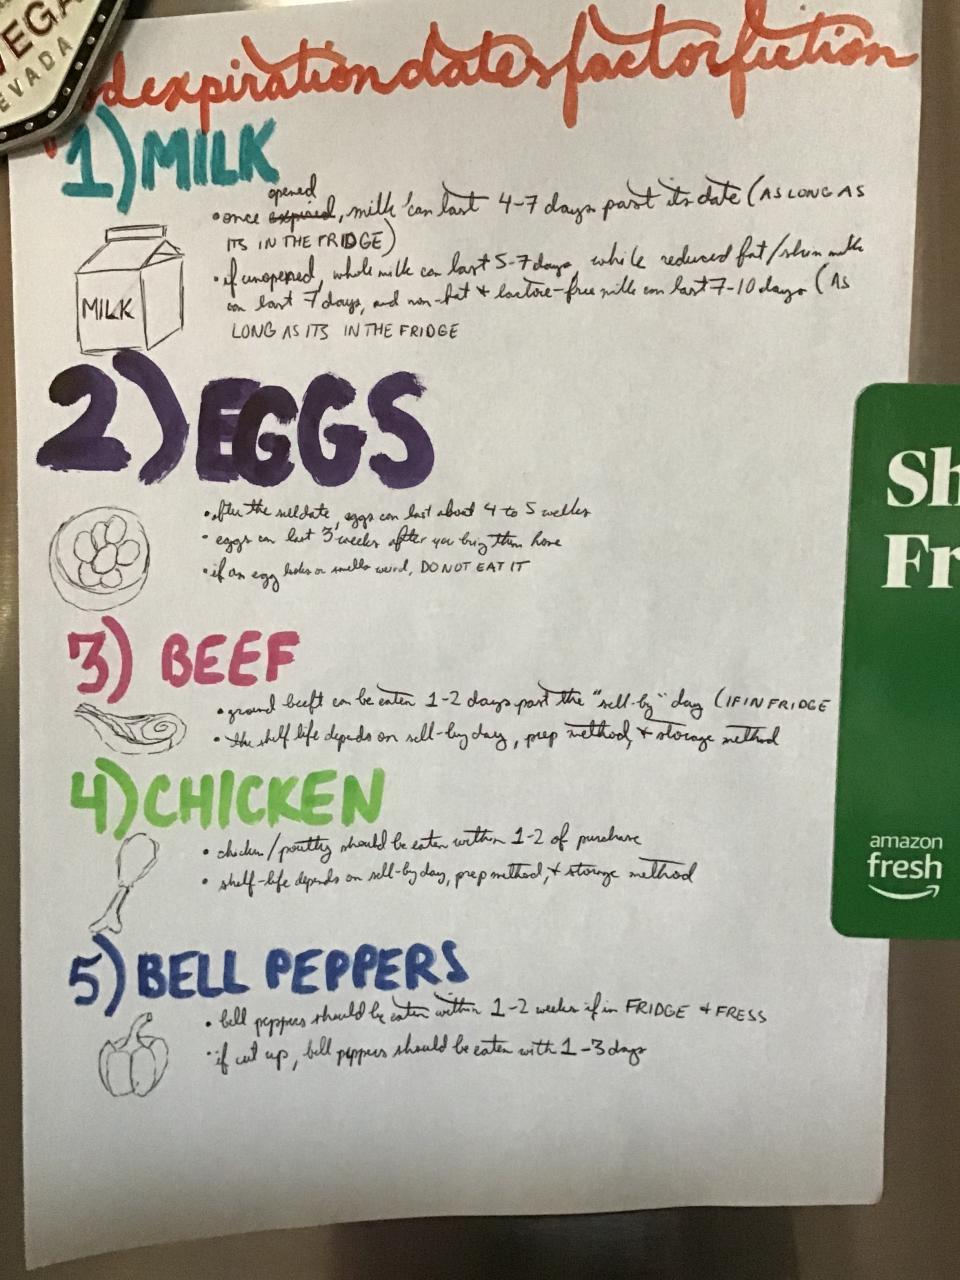 VEGA
EVADA
d expiration dates fact or fiction
1) MILK
opened
• once expired, milk can last 4-7 days past its date (AS LONG AS
ITS IN THE FRIDGE)
• if unopened, whole milk can last 5-7 days, while reduced fat/skim milk
can last 7 days, and non-fat + lactose-free milk can last 7-10 days (AS
LONG AS ITS IN THE FRIDGE
MILK
2) EGGS
• after the selldate, eggs can last about 4 to 5 weeks
• eggs can last 3 weeks after you bring them home
• if an egg looks or smells weird, DO NOT EAT IT
3) BEEF
• ground beeft can be eaten 1-2 days past the "sell-by" day (IF IN FRIDGE
• the shelf life depends on sell-by day, prep method, + storage method
4) CHICKEN
• chicken/poultry should be eaten within 1-2 of purchase
• shelf-life depends on sell-by day, prep method, + storage method
5) BELL PEPPERS
• bell peppers should be eaten within 1-2 weeks if in FRIDGE + FRESS
• if cut up, bell peppers should be eaten with 1-3 days
Sh
Fr
amazon
fresh